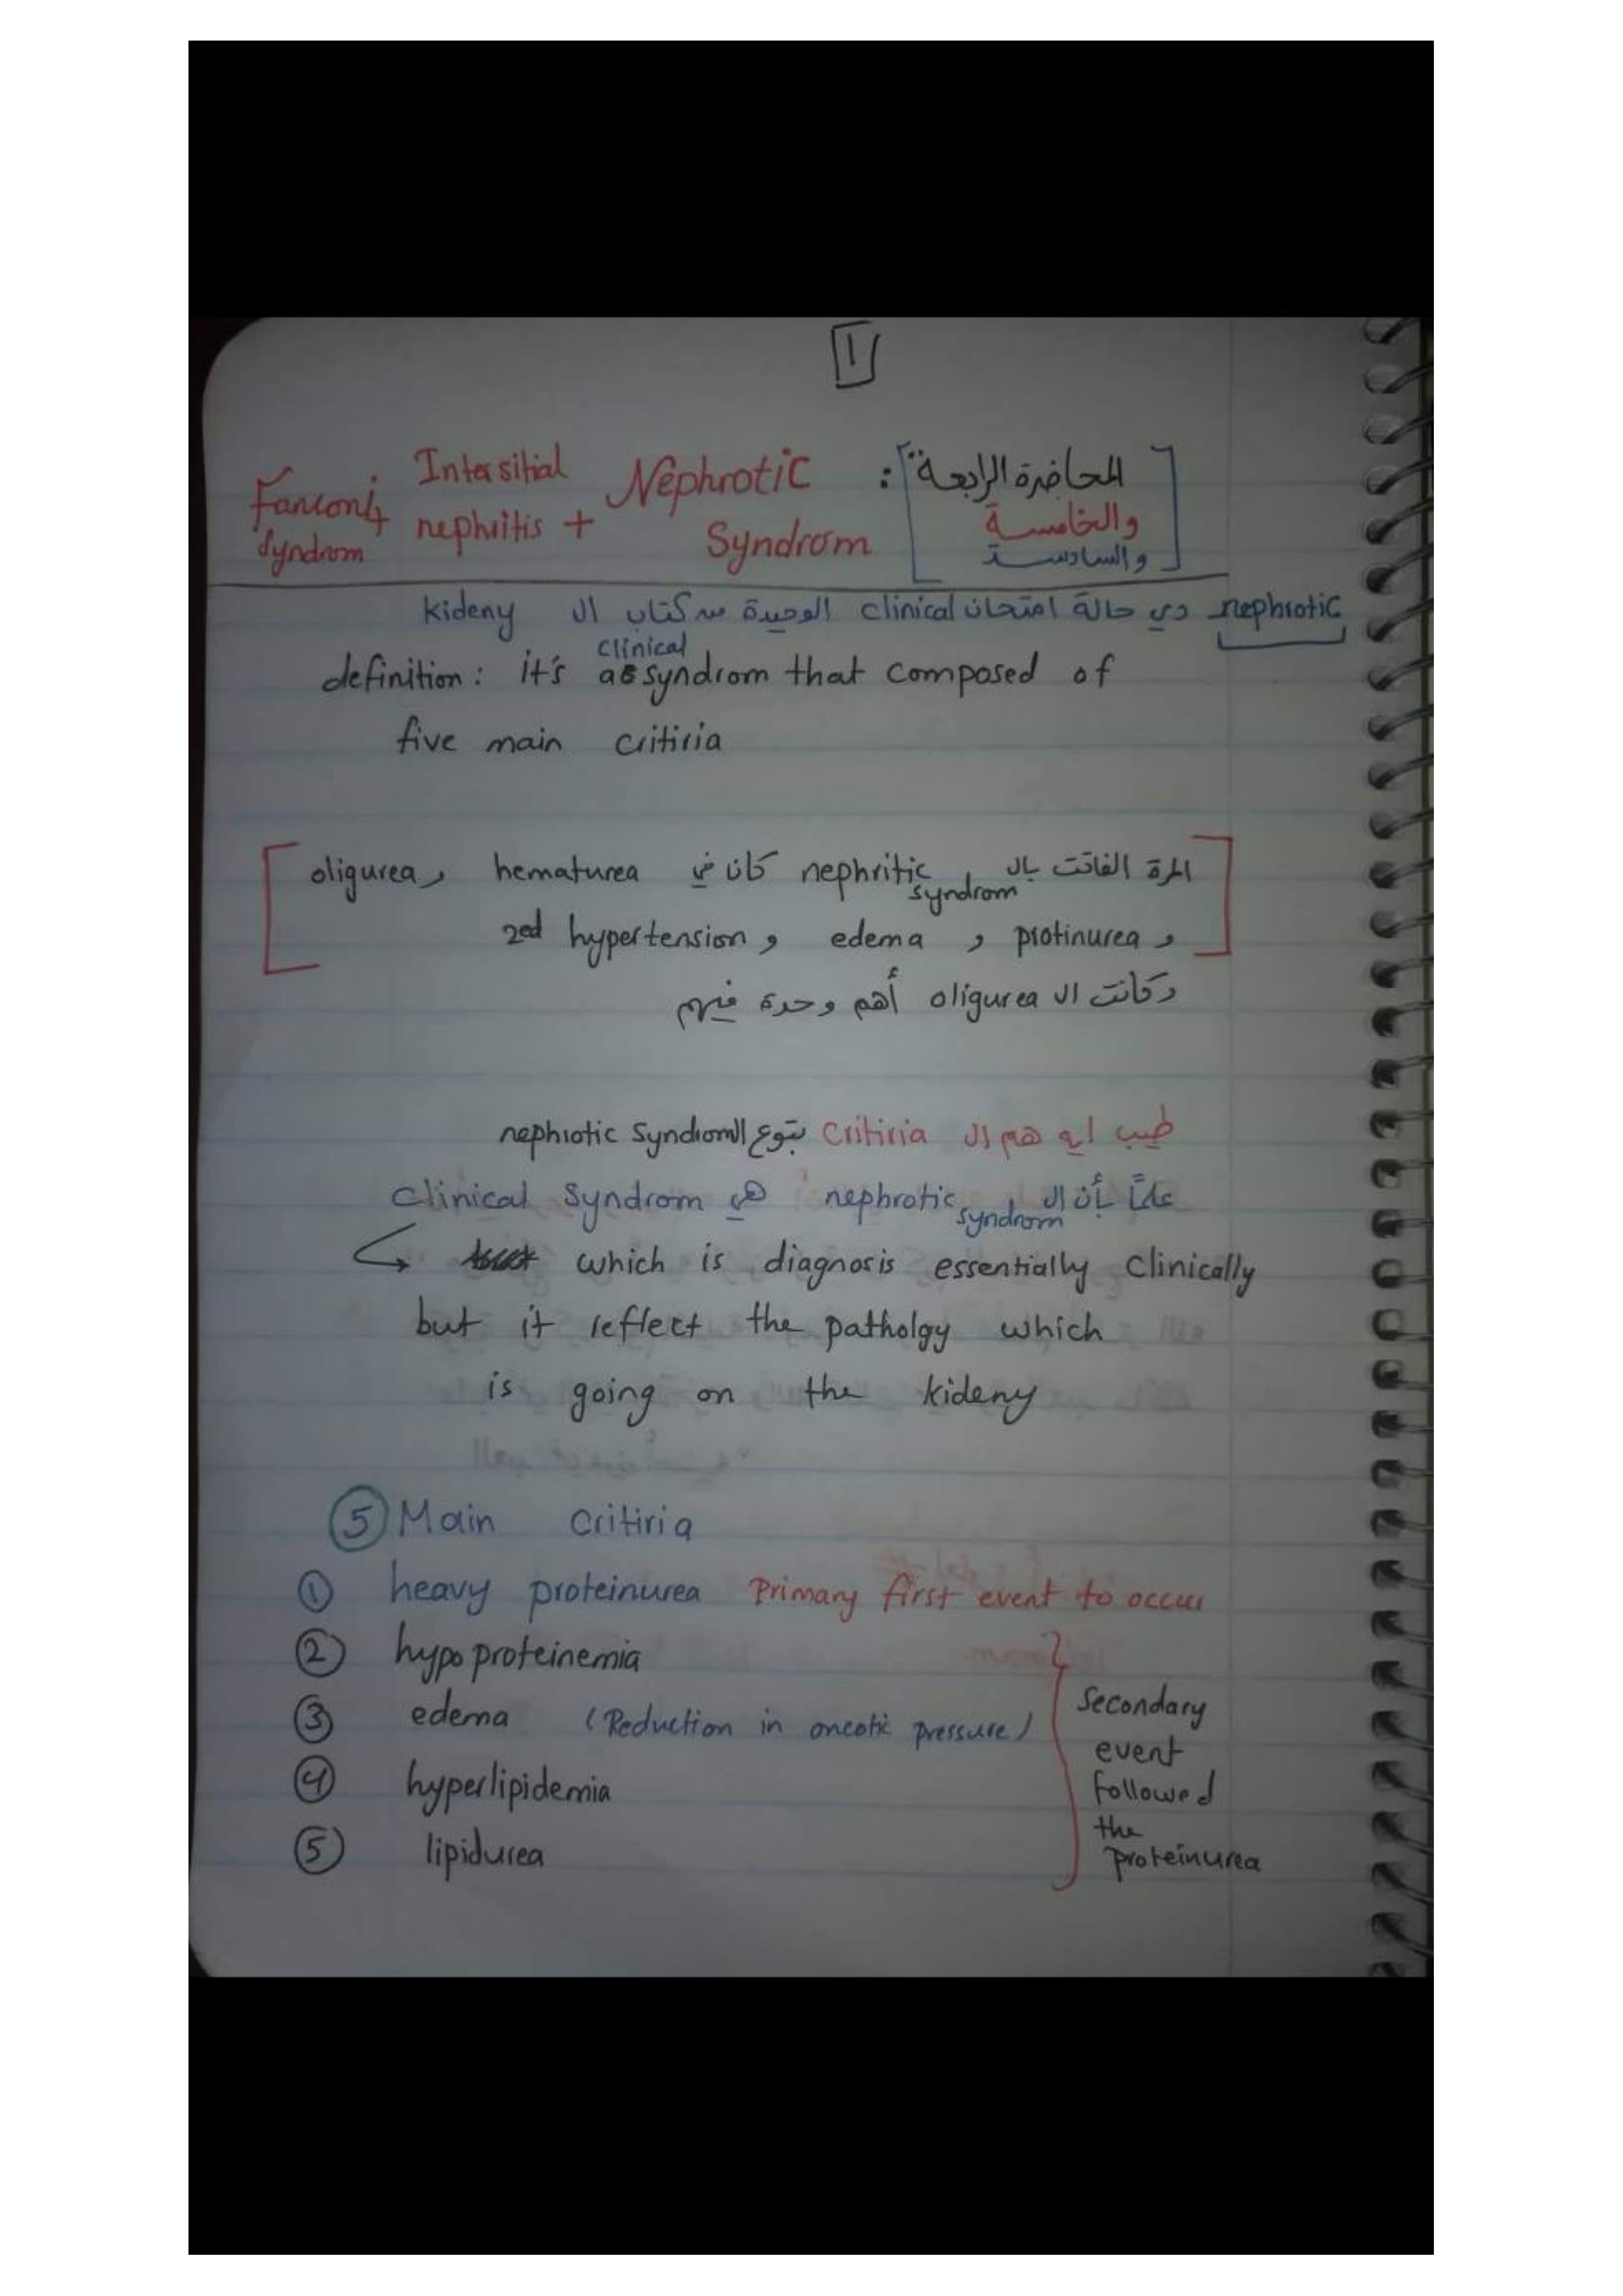 1
المحاضرة الرابعة : Nephrotic Syndrom + Intersitial nephritis + Fanconi Syndrom
والخامسة
والسادسة
nephrotic دي حالة امتحان clinical الوحيدة من كتاب ال kideny
definition : it's a clinical syndrom that composed of
five main critiria
المرة الفاتت بال nephritic syndrom كان في hematurea و oligurea
و protinurea و edema و 2ed hypertension
وكانت ال oligurea أهم وحدة فيهم
طيب ايه هم ال critiria بتوع ال nephrotic syndrom
علماً بأن ال nephrotic syndrom هي Clinical Syndrom
which is diagnosis essentially Clinically
but it reflect the patholgy which
is going on the kideny
5 Main critiria
1 heavy proteinurea Primary first event to occur
2 hypoproteinemia
3 edema (Reduction in oncotic pressure)
4 hyperlipidemia
5 lipidurea
Secondary
event
followed
the
proteinurea